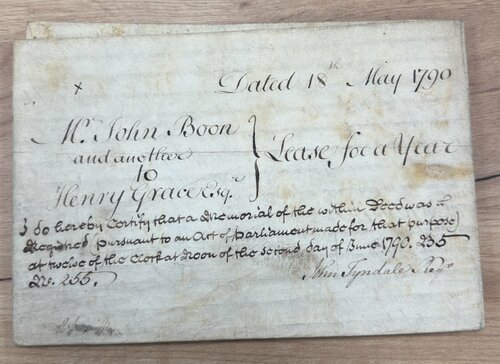 x
Dated 18th May 1790
Mr. John Boon
and another
to
Henry Grace Esqr.
Lease for a Year
I do hereby Certify that a Memorial of the within Deed was
Registered pursuant to an Act of Parliament made for that purpose
at twelve of the Clock at Noon of the second day of June 1790. 235
No. 255.
John Tyndale Regr